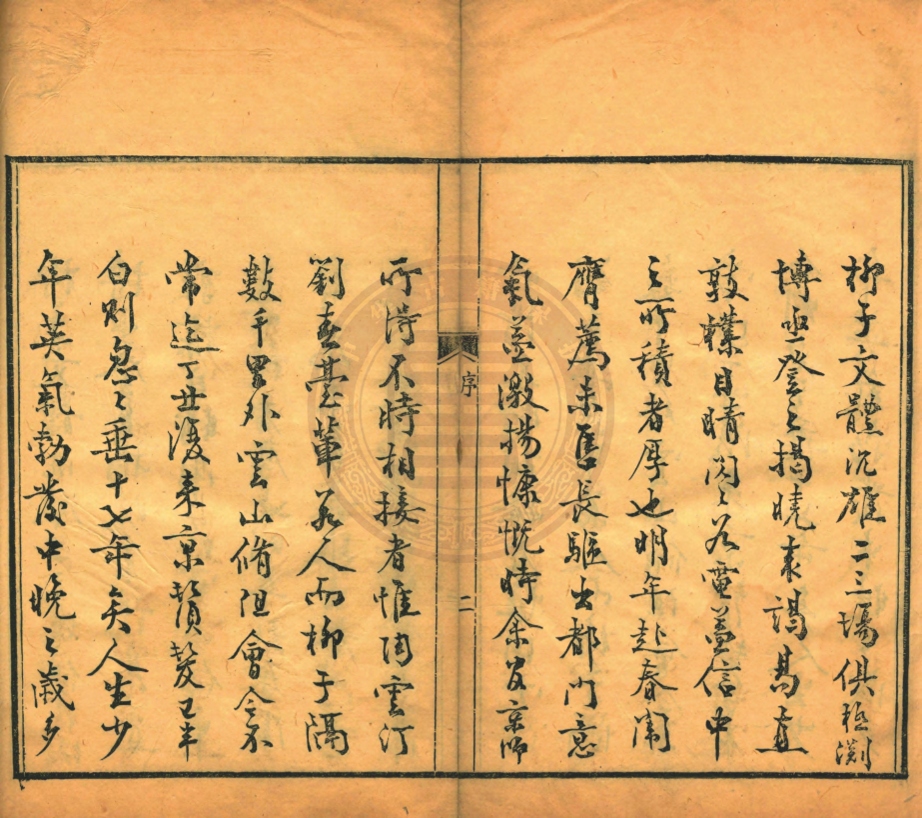 柳子文體沉雄二三場俱極淵
博亟登之揭曉来謁葛衣
敦樸目睛閃〻若電益信中
之所積者厚也明年赴春闈
膺薦未售長驅出都門意
氣益激揚慷慨時余官京師
序
二
所得不時相接者惟陶雲汀
劉春臺輩若人而柳子隔
數千里外雲山脩阻會合不
常迨丁丑復来京鬢髮已半
白則忽〻垂十七年矣人生少
年英氣勃發中晚之歲多